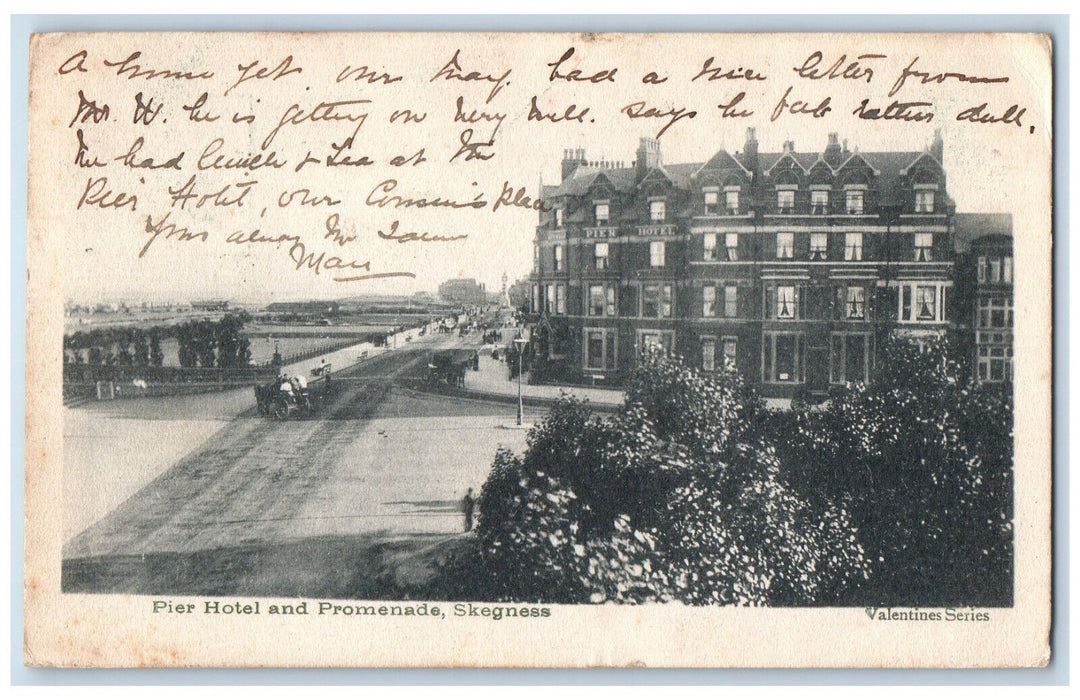 A home yet on our way. had a nice letter from
Mr. W. he is getting on very well. says he felt rather dull.
We had lunch & Tea at the
Pier Hotel, our Cousin's place
Yours always
PIER HOTEL
Pier Hotel and Promenade, Skegness
Valentines Series